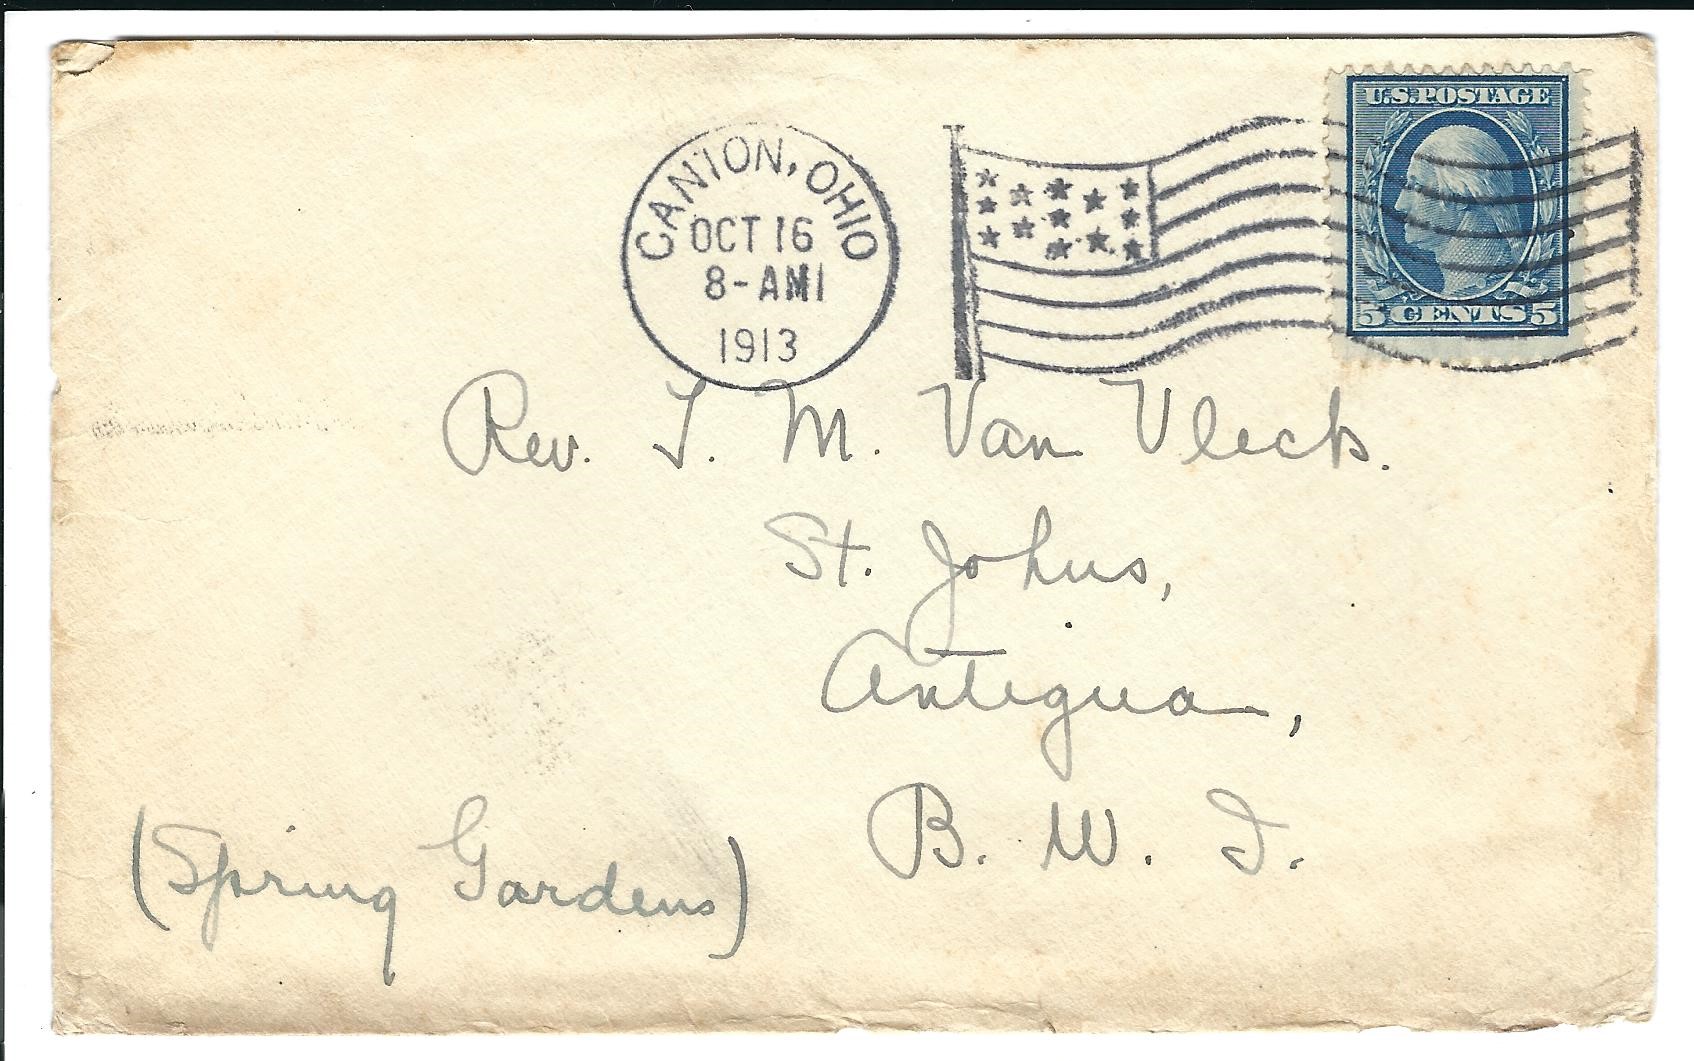 U.S. POSTAGE
CANTON, OHIO
OCT 16
8-AM1
1913
5 CENTS 5
Rev. T. M. Van Vleck.
St. Johns,
Antigua,
B. W. I.
(Spring Gardens)